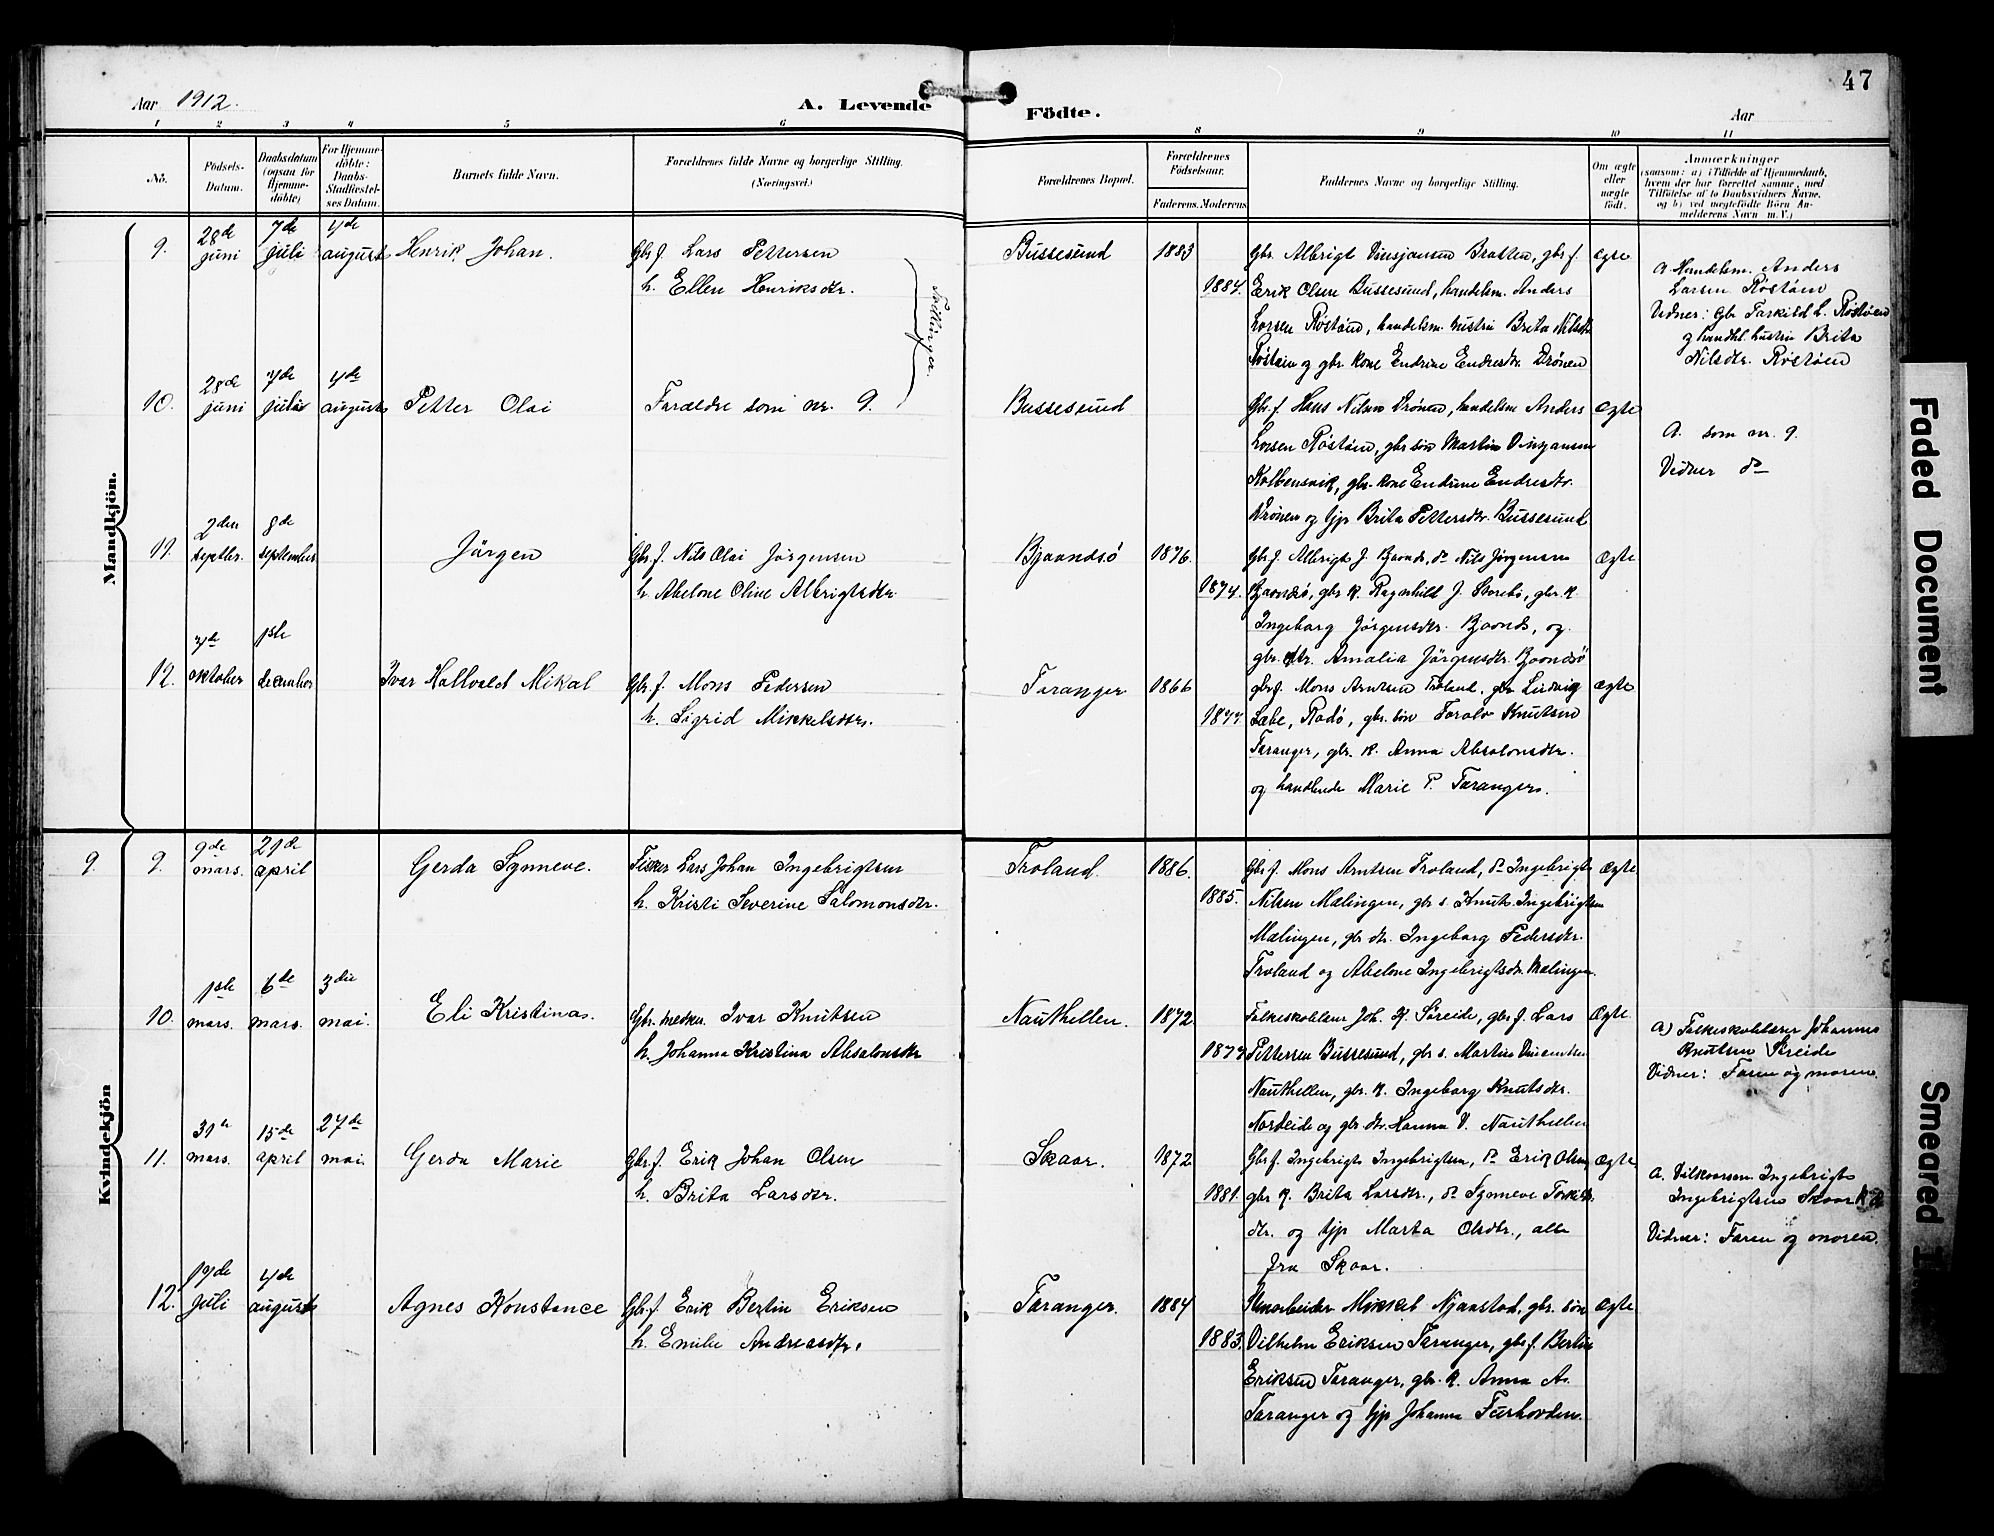 47
Aar 1912.
A. Levende
Födte.
Aar
1 2 3 4 5 6 8 9 10 11
No.
Födsels-
Datum.
Daabsdatum
(ogsaa for
Hjemme-
döbte)
For Hjemme-
döbte:
Daabs-
Stadfæstel-
ses Datum.
Barnets fulde Navn.
Forældrenes fulde Navne og borgerlige Stilling.
(Næringsvei.)
Forældrenes Bopæl.
Forældrenes
Födselsaar.
Faderens. Moderens.
Faddernes Navne og borgerlige Stilling.
Om ægte
eller
uægte
født.
Anmærkninger
(saasom: a) i Tilfælde af Hjemmedaab,
hvem der har forrettet samme, med
Tilföielse af to Daabsvidners Navne.
og b) ved uægtefödte Börn An-
melderens Navn m. V.)
Mandkjön.
9. 28de juni 7de juli 4de august Henrik Johan.
Gbr.f. Lars Pettersen
h. Ellen Henriksdtr.
Tvillinger.
Bussesund 1883
1884.
Gbr. Albrigt Vinsjansen Bratten, gbr f.
Erik Olsen Bussesund, handelsm. Anders
Larsen Røstøen, handelsm. hustru Brita Nilsdtr
Røstøen og gbr. kone Endrine Endresdtr. Drönen
ægte
a. Handelsm. Anders
Larsen Røstøen
Vidner: Gbr Torkild L. Røstøen
og handl. hustru Brita
Nilsdtr. Røstøen
10. 28de juni 7de juli 4de august Petter Olai
Forældre som nr. 9.
Bussesund
Gbr.f. Hans Nilsen Drönen, handelsm Anders
Larsen Røstøen, gbr søn Martin Vinsjansen
Kolbensvik, gbr. kone Endrine Endresdtr.
Drönen og tjp Brita Pettersdtr. Bussesund
ægte
A. som nr. 9.
Vidner do
11. 2den septbr. 8de september Jörgen
Gbr.f. Nils Olai Jörgensen
h. Abelone Oline Albrigtsdtr.
Bjaandsö 1876.
1874.
Gbr f. Albrigt J. Bjaands, do Nils Jörgensen
Bjaandsö, gbr k. Ragnhild J. Storebö, gbr. k
Ingeborg Jörgensdtr. Bjaands, og
gbr. dtr. Amalia Jörgensdtr. Bjaandsö
ægte
12. 7de oktober 1ste december Ivar Hallvald Mikal
Gbr.f. Mons Pedersen
h. Sigrid Mikkelsdtr.
Taranger 1866
1877.
gbr f. Mons Arntsen Troland, gbr Ludvig
Sæbe, Radö, gbr. søn Torolv Knutsen
Taranger, gbr. k. Anna Absalonsdtr.
og handlende Marie P. Taranger.
ægte
Kvindekjön
9. 9. 9de mars. 21de april Gerda Synneve.
Fisker Lars Johan Ingebrigtsen
h. Kristi Severine Salomonsdtr.
Troland. 1886.
1885.
Gbr f. Mons Arntsen Troland, do Ingebrigt
Nilsen Malingen, gbr s. Knut Ingebrigtsen
Malingen, gbr dtr. Ingeborg Pedersdtr.
Troland og Abelone Ingebrigtsdtr. Malingen
ægte
10. 1ste mars. 6de mars. 3die mai. Eli Kristina.
Gbr. Ivar Knutsen
h. Johanna Kristina Absalonsdtr
Nauthellen. 1872
1877
Folkeskolelærer Joh. K. Søreide, gbr f. Lars
Pettersen Bussesund, gbr s. Martin Vincentsen
Nauthellen, gbr. k. Ingeborg Knutsdtr.
Nordeide og gbr dtr. Hanna V. Nauthellen
ægte
a) Folkeskolelærer Johannes
Knutsen Søreide
Vidner: Faren og moren.
11. 31te mars. 15de april 27de mai Gerda Marie
Gbr.f. Erik Johan Olsen
h. Brita Larsdtr.
Skaar. 1872
1881.
Gbr f. Ingebrigt Ingebrigtsen, do Erik Olsen,
gbr k. Brita Larsdtr., do Synneve Torkilds-
dtr. og tjp Marta Olsdtr., alle
fra Skaar.
ægte
a. Ingebrigt
Ingebrigtsen Skaar
Vidner: Faren og moren.
12. 19de juli 4de august Agnes Konstance
Gbr.f. Erik Bertin Eriksen
h. Emilie Andreasdtr.
Taranger. 1884
1883.
Stenarbeider Mikkel Njaastad, gbr. søn
Vilhelm Eriksen Taranger, gbr f. Bertin
Eriksen Taranger, gbr. k. Anna A.
Taranger og tjp Johanna Furhovden.
ægte
Faded Document
Smeared